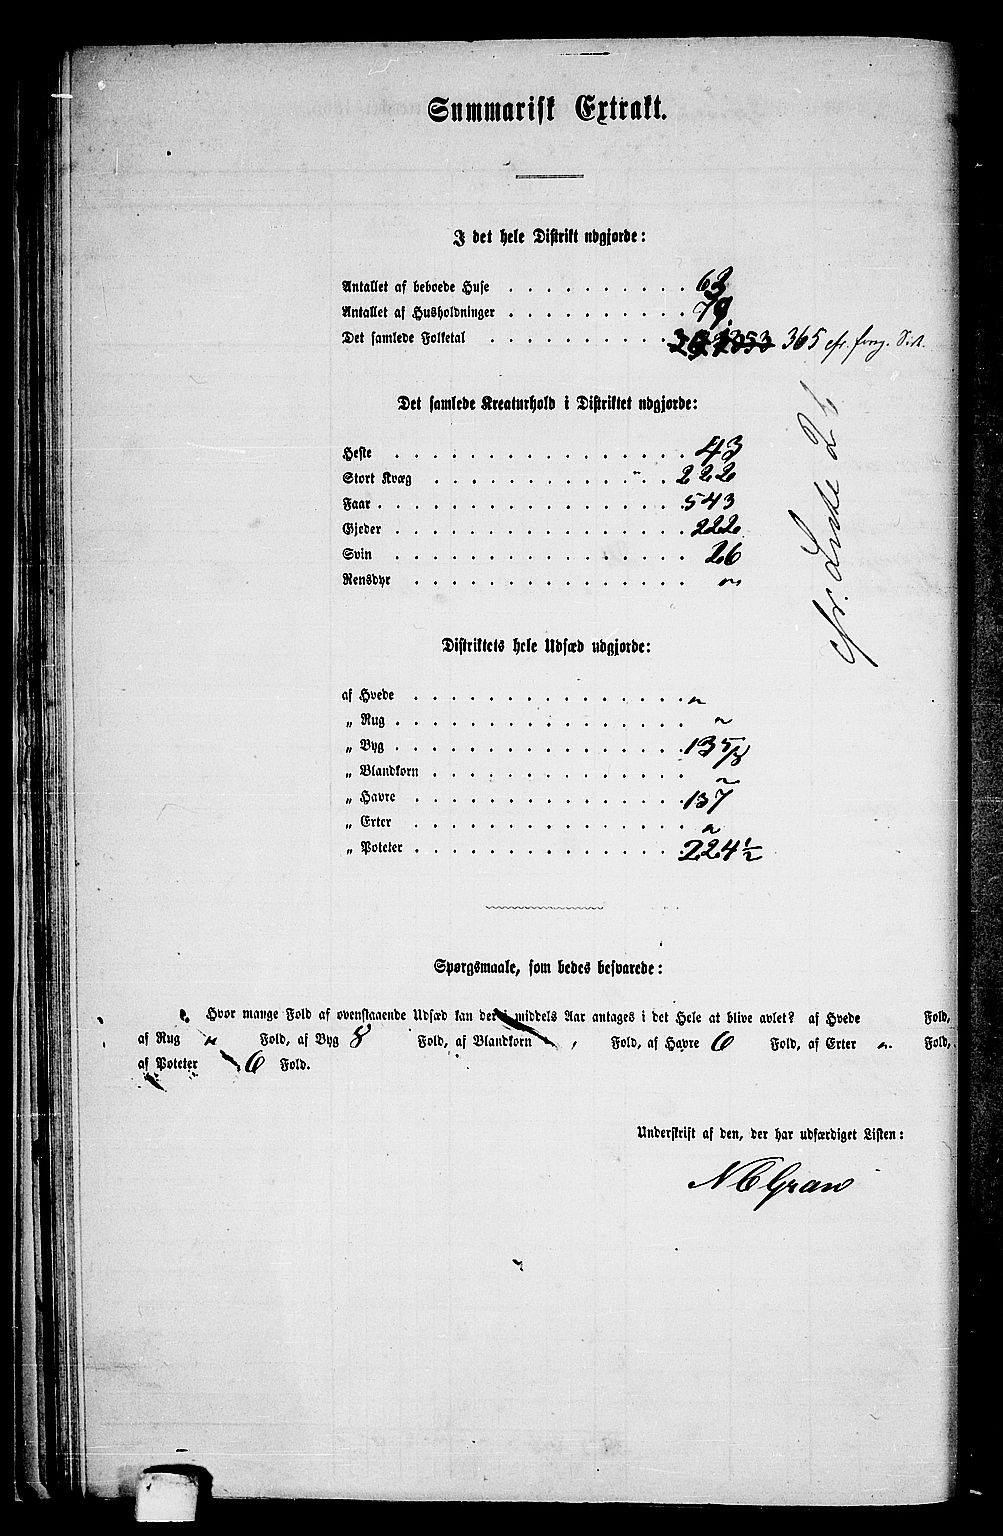 Summarisk Extrakt.
I det hele Distrikt udgjorde:
Antallet af beboede Huse . . . . . . . . . . 63
Antallet af Husholdninger . . . . . . . . . . 79.
Det samlede Folketal . . . . . . . . . . 353 365 cfr. forrg. Sid.
Det samlede Kreaturhold i Distriktet udgjorde:
Heste . . . . . . . . . . 43
Stort Kvæg . . . . . . . . . . 222
Faar . . . . . . . . . . 543
Gjeder . . . . . . . . . . 222
Svin . . . . . . . . . . 26
Rensdyr . . . . . . . . . . "
cfr. Liste 26
Distriktets hele Udsæd udgjorde:
af Hvede . . . . . . . . . . "
„ Rug . . . . . . . . . . "
„ Byg . . . . . . . . . . 135/8
„ Blandkorn . . . . . . . . . . "
„ Havre . . . . . . . . . . 137
„ Erter . . . . . . . . . . "
„ Poteter . . . . . . . . . . 224 1/2
Spørgsmaale, som bedes besvarede:
Hvor mange Fold af ovenstaaende Udsæd kan der i middels Aar antages i det Hele at blive avlet? af Hvede Fold,
af Rug " Fold, af Byg 8 Fold, af Blandkorn " Fold, af Havre 6 Fold, af Erter " Fold,
af Poteter 6 Fold.
Underskrift af den, der har udfærdiget Listen:
N C Gran